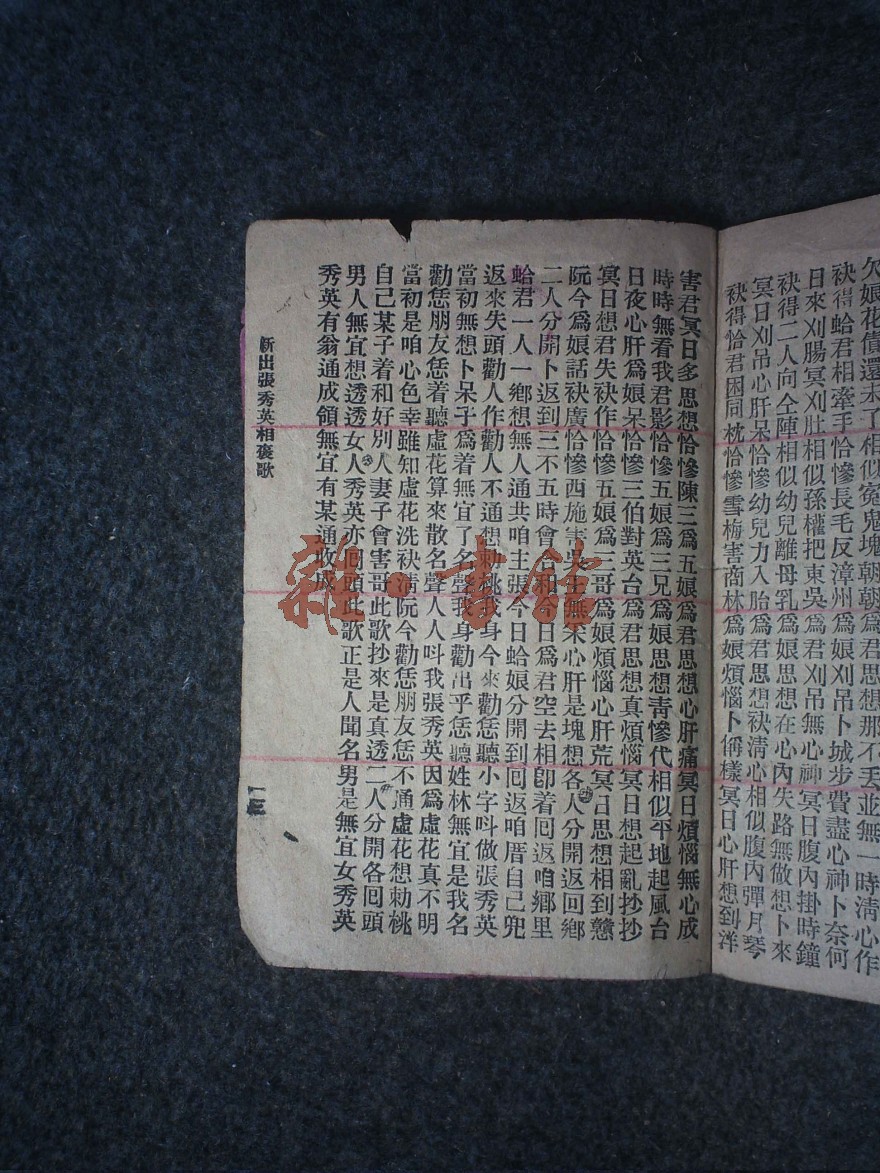 欠娘花債還未了相似冤鬼塊朝朝爲君思想那不丢並無一時清心作
袂得蛤君相牽手恰慘長毛反漳州爲娘刈吊卜城步費盡心神卜奈何
日來刈腸冥刈肚相似孫權把東吳爲君刈吊無心神冥日腹內掛時鐘
袂得二人向仝陣相似幼兒離母乳爲娘思想在心內失路無做想卜來
冥日刈吊心肝呆恰慘幼兒力入胎爲君思想袂清心相似腹內彈月琴
袂得恰君困同枕恰慘雪梅害商林爲娘煩惱卜偁樣冥日心肝想到洋
害君冥日多思想恰慘陳三爲五娘爲君思想心肝痛冥日煩惱無心成
時時無看我君影恰慘五娘爲三兄爲娘思想靑慘代相似平地起風台
日夜心肝爲娘呆恰慘三伯對英台爲君思想真煩惱冥日想起亂抄抄
冥日想君失袂作恰慘五娘爲三哥爲娘煩惱心肝荒冥日思想相到戇
阮今爲娘話袂廣恰慘西施害吳王無采心肝是塊想各人分開返回鄉
二人分開卜返到三不五時會合和今日爲君空去相卽着囘返咱鄉里
蛤君一人一鄉想無人通共咱主張今日蛤娘分開到囘返咱厝自己兜
返來失頭勸人作勸人不通想勑桃我身今來勸恁聽小字叫做張秀英
當初無想卜呆子爲着無宜了名聲我身勸出乎恁聽姓林無宜是我名
勸恁朋友恁着聽虛花算來散名聲人人叫我張秀英因爲虛花真不明
當初是咱心色幸雖知虛花洗袂淸阮今勸恁朋友恁不通虛花想勑桃
自己某子着和好別人妻子會害哥此歌抄來是真透二人分開各囘頭
男人無宜想透透女人秀英亦囘頭此歌正是人聞名男是無宜女秀英
秀英有翁通成領無宜有某通收成
新出張秀英相褒歌
十三
雜·書館